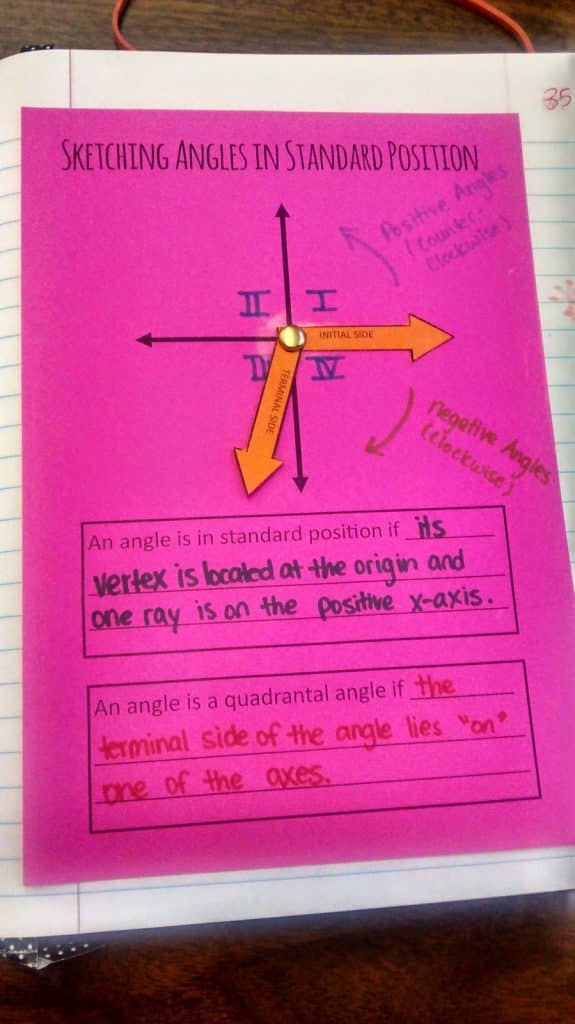 35
SKETCHING ANGLES IN STANDARD POSITION
Positive Angles
(counter-
clockwise)
II I
INITIAL SIDE
III IV
TERMINAL SIDE
negative Angles
(clockwise)
An angle is in standard position if its
vertex is located at the origin and
one ray is on the positive x-axis.
An angle is a quadrantal angle if the
terminal side of the angle lies "on"
one of the axes.